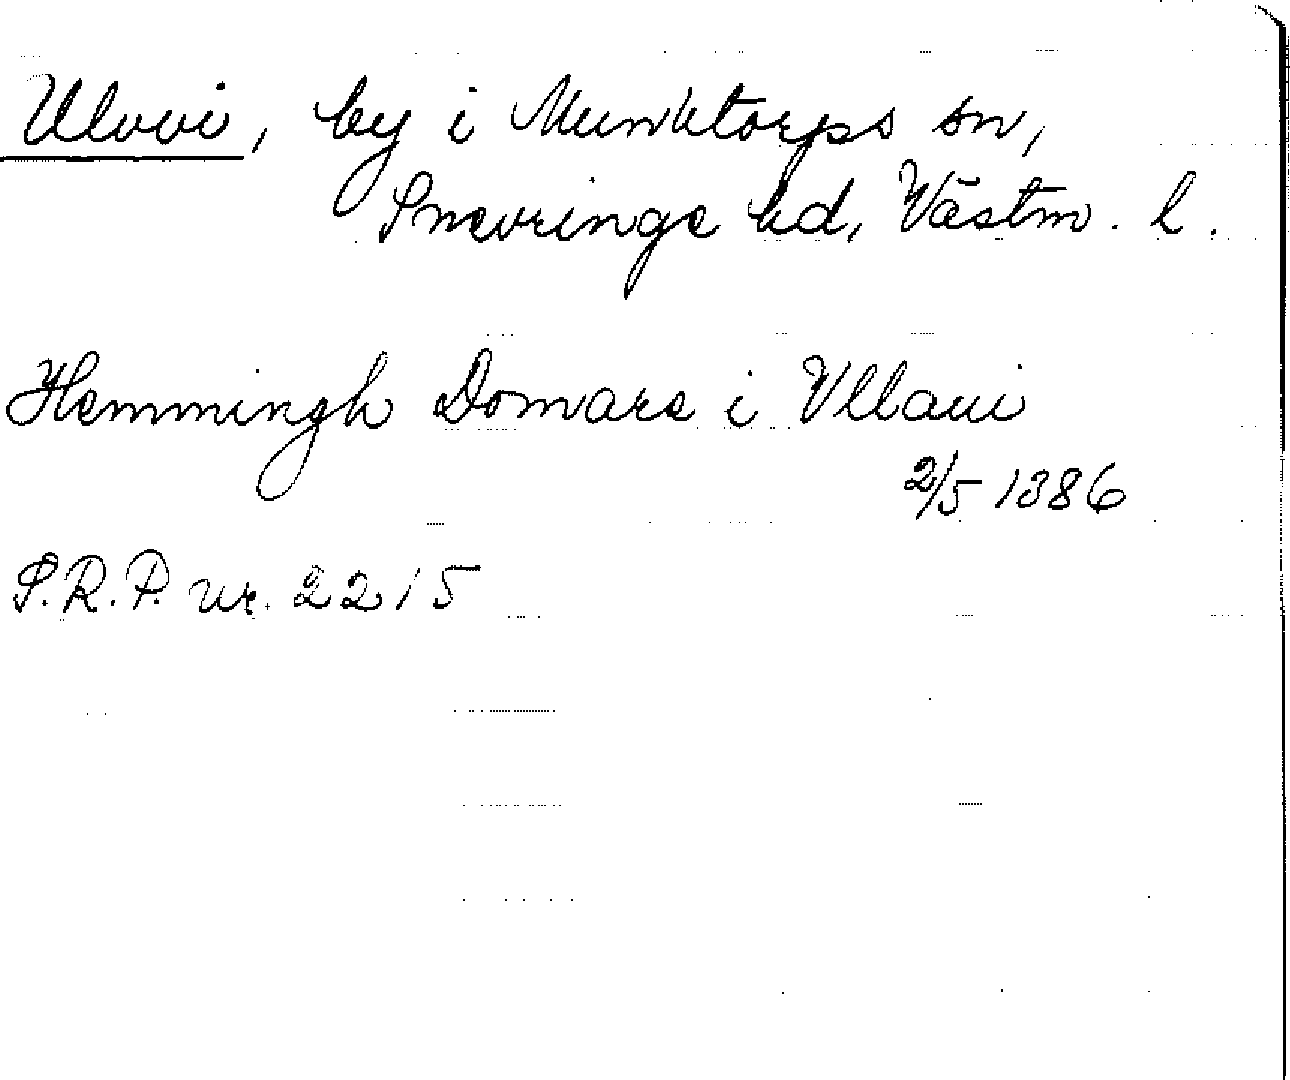 Ulvvi, by i Munktorps sn,
Snevringe hd, Västm. l.
Hemmingh Domare i Vllaui
2/5 1386
S.R.P. nr. 2215